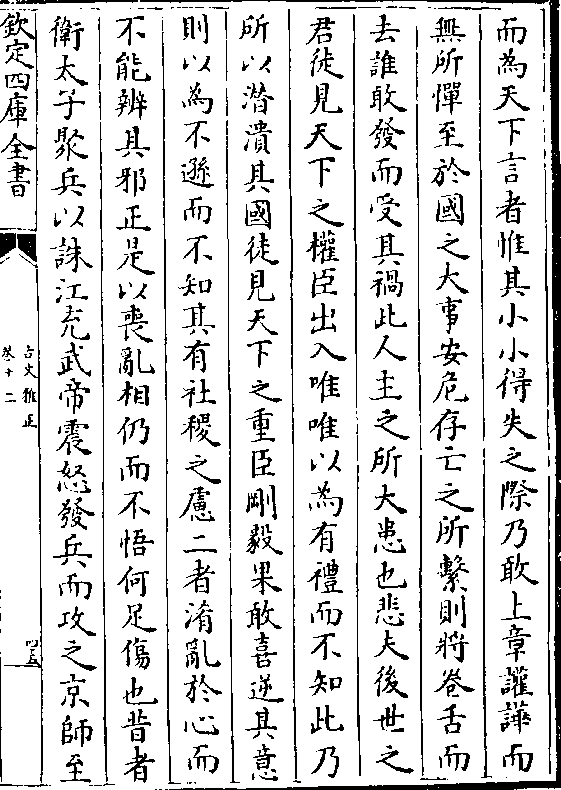 而為天下言者惟其小小得失之際乃敢上章讙譁而
無所憚至於國之大事安危存亡之所繫則將卷舌而
去誰敢發而受其禍此人主之所大患也悲夫後世之
君徒見天下之權臣出入唯唯以為有禮而不知此乃
所以潛潰其國徒見天下之重臣剛毅果敢喜逆其意
則以為不遜而不知其有社稷之慮二者淆亂於心而
不能辨其邪正是以喪亂相仍而不悟何足傷也昔者
衛太子聚兵以誅江充武帝震怒發兵而攻之京師至
欽定四庫全書
古文雅正
卷十二